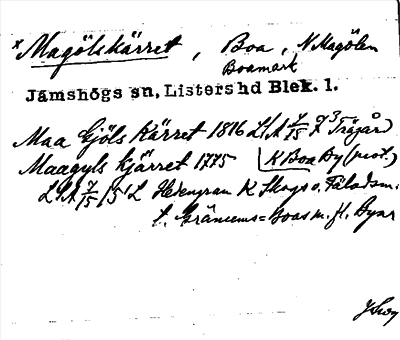 x Magölskärret, Boa, N Magölen
Boamark
Jämshögs sn, Listers hd Blek. l.
Maa Gjöls Kärret 1816 LSA 7/15 Trägård
Maagyls Kjärret 1775 K Boa By (prot.)
LSA 7/15 K Skogs o. Fälads m.
t. Gränums= Boas m. fl. Byar